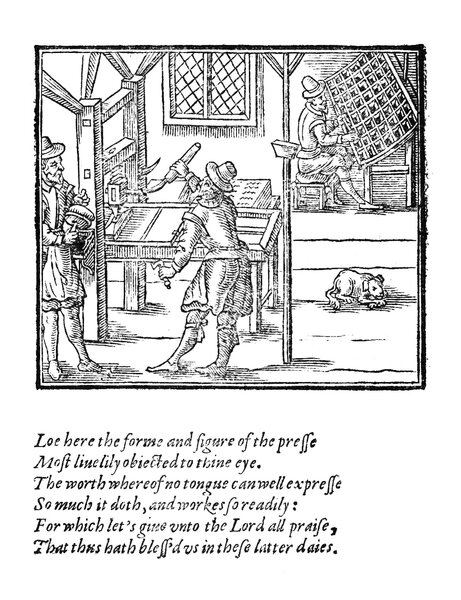 Loe here the forme and figure of the preſſe
Moſt liuelily obiected to thine eye.
The worth whereof no tongue can well expreſſe
So much it doth, and workes ſo readily:
For which let's giue vnto the Lord all praiſe,
That thus hath bleſſ'd vs in theſe latter daies.